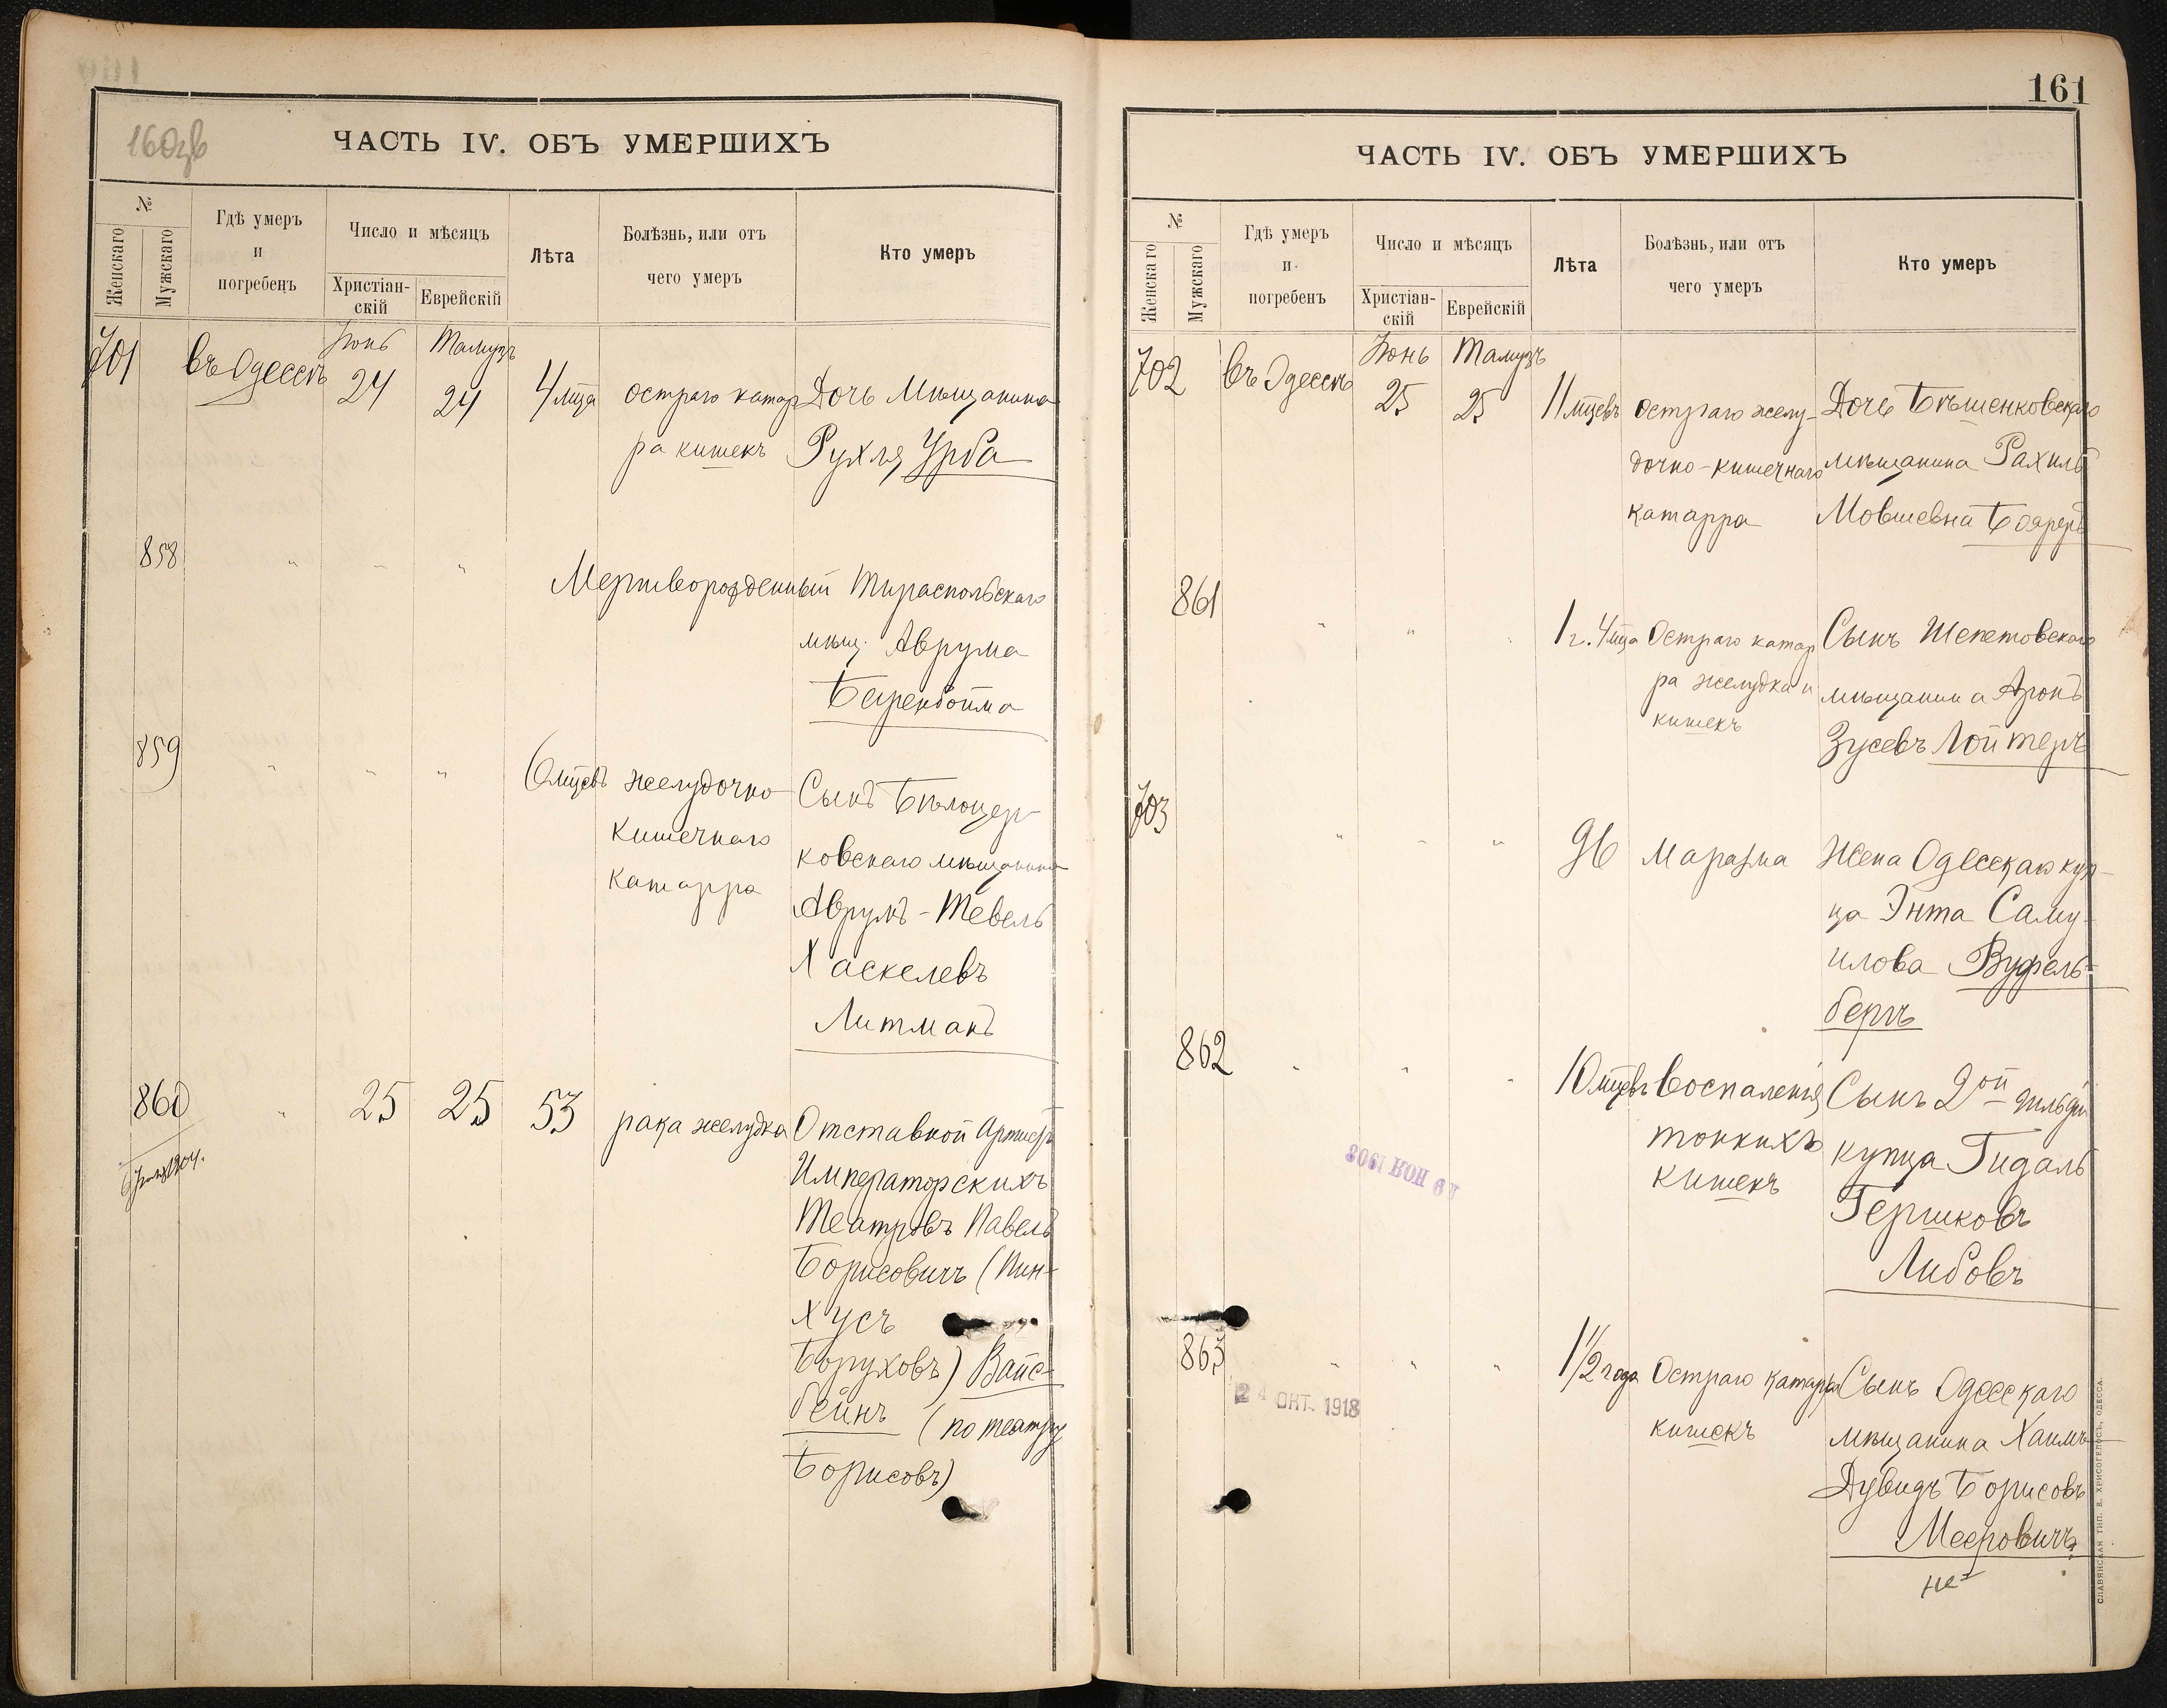 160зв
ЧАСТЬ IV. ОБЪ УМЕРШИХЪ
№
Женскаго
Мужскаго
Гдѣ умеръ
и
погребенъ
Число и мѣсяцъ
Христіан-
скій
Еврейскій
Лѣта
Болѣзнь, или отъ
чего умеръ
Кто умеръ
Іюнь Тамузъ
701 въ Одессѣ 24 24 4 мца остраго катар Дочь Мѣщанина
ра кишекъ Рухля Урба
858 " " "
Мертворожденный Тираспольскаго
мѣщ. Аврума
Беренбойма
859 " " " 6 мцевъ желудочно Сынъ Бѣлоцер-
кишечнаго ковскаго мѣщанина
катарра Аврумъ-Тевель
Хаскелевъ
Литманъ
860 " 25 25 53 рака желудка Отставной Артистъ
Императорскихъ
Театровъ Павелъ
Борисовичъ (Пин-
хусъ
Боруховъ) Вайс-
бейнъ (по театру
Борисовъ)
161
ЧАСТЬ IV. ОБЪ УМЕРШИХЪ
№
Женскаго
Мужскаго
Гдѣ умеръ
и
погребенъ
Число и мѣсяцъ
Христіан-
скій
Еврейскій
Лѣта
Болѣзнь, или отъ
чего умеръ
Кто умеръ
Іюнь Тамузъ
702 въ Одессѣ 25 25 11 мцевъ остраго желу- Дочь Бѣшенковскаго
дочно-кишечнаго мѣщанина Рахиль
катарра Мовшевна Бояреръ
861 " " " 1 г. 4 мца Остраго катар Сынъ Шепетовскаго
ра желудка и мѣщанина Аронъ
кишекъ Зусевъ Лойтеръ
703 " " " 96 Маразма Жена Одесскаго куп-
ца Энта Саму-
илова Вуфель-
бергъ
862 " " " 10 мцевъ Воспаленія Сынъ 2ой гильдіи
тонкихъ купца Гидаль
кишекъ Гершковъ
Либовъ
НОЯ 1908
863 " " " 1 1/2 года Остраго катарра Сынъ Одесскаго
кишекъ мѣщанина Хаимъ-
Дувидъ Борисовъ
Мееровичъ
не
24 ОКТ. 1918
СЛАВЯНСКАЯ ТИП. Е. ХРИСОГЕЛОСЪ, ОДЕССА.